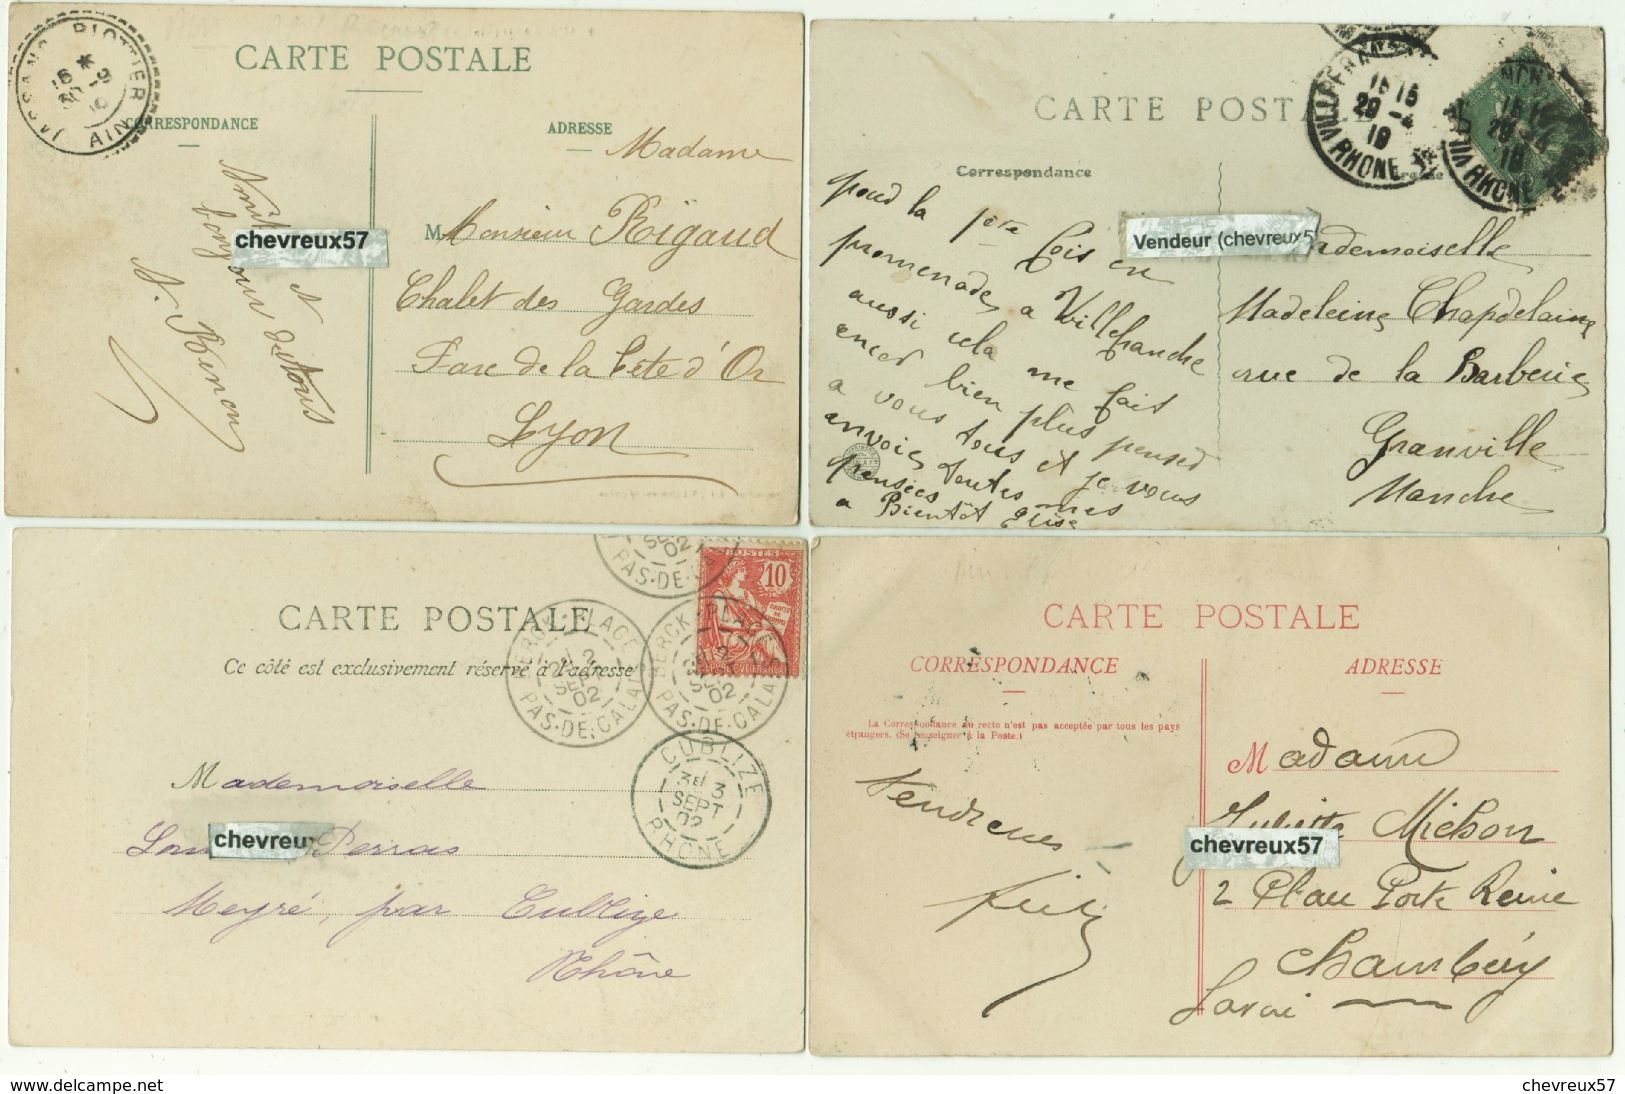 CARTE POSTALE
CORRESPONDANCE
ADRESSE
JASSANS RIOTTIER
16
AIN
Madame
M Monsieur Rigaud
Chalet des Gardes
Parc de la Tête d'Or
Lyon
bonjour de tous
chevreux57
CARTE POSTALE
Correspondance
VILLEFRANCHE
15 15
29 - 4
19
RHONE
pour la fête
promenade a Villefranche
aussi cela me fait
bien plus
a vous tous et je vous
envoies toutes mes
pensées
a Bientôt Elise
Vendeur (chevreux5
Mademoiselle
Madeleine Chapdelaine
rue de la Barberie
Granville
Manche
CARTE POSTALE
Ce côté est exclusivement réservé à l'adresse
POSTES
10
BERCK-PLAGE
2
SEPT
02
PAS-DE-CALAIS
CUBLIZE
3
SEPT
02
RHONE
Mademoiselle
Perras
Meyré, par Cublize
Rhône
chevreux
CARTE POSTALE
CORRESPONDANCE
ADRESSE
La Correspondance au recto n'est pas acceptée par tous les pays
étrangers. (Se renseigner à la Poste.)
Tendresses
Madame
Juliette Michon
2 Place Porte Reine
Chambéry
Savoie
chevreux57
www.delcampe.net
chevreux57